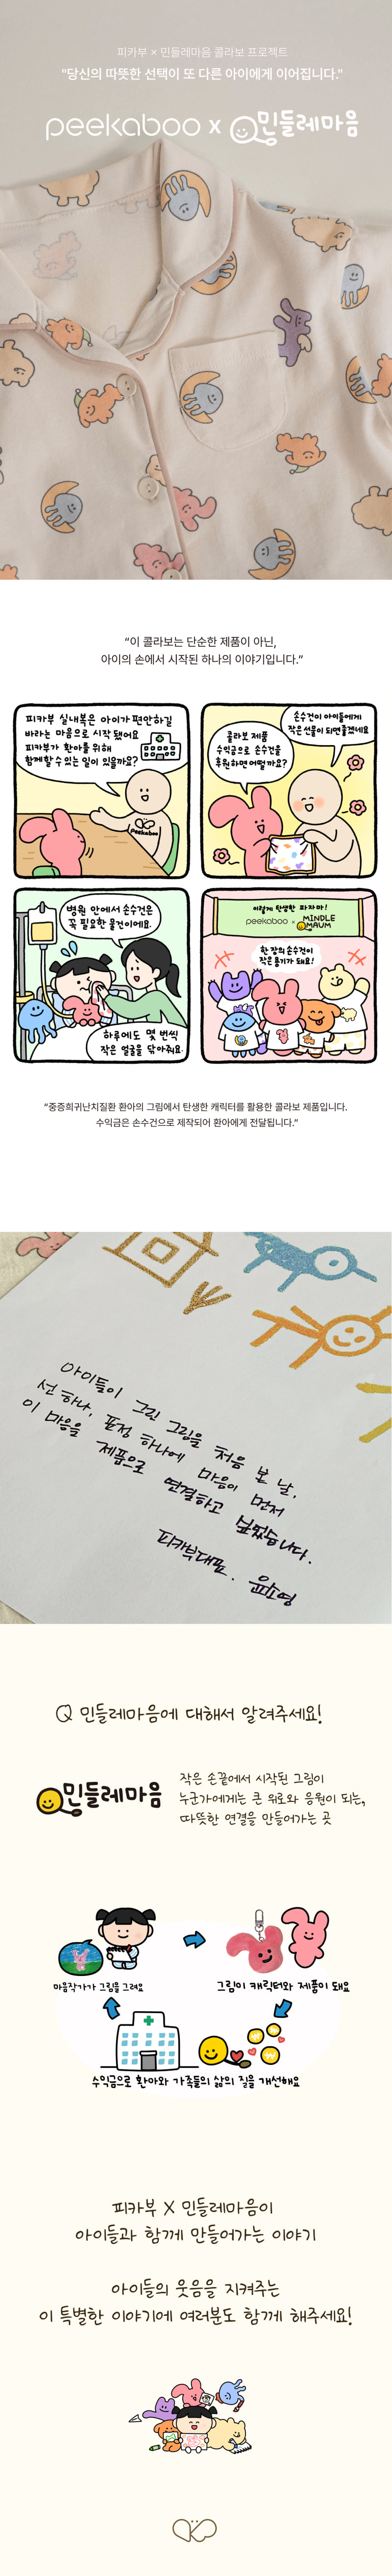 피카부 × 민들레마음 콜라보 프로젝트
"당신의 따뜻한 선택이 또 다른 아이에게 이어집니다."
peekaboo x 민들레마음
“이 콜라보는 단순한 제품이 아닌,
아이의 손에서 시작된 하나의 이야기입니다.”
피카부 실내복은 아이가 편안하길
바라는 마음으로 시작 됐어요
피카부가 환아를 위해
함께할 수 있는 일이 있을까요?
peekaboo
손수건이 아이들에게
작은 선물이 되면 좋겠네요
콜라보 제품
수익금으로 손수건을
후원하면 어떨까요?
병원 안에서 손수건은
꼭 필요한 물건이에요.
하루에도 몇 번씩
작은 얼굴을 닦아줘요.
이렇게 탄생한 파자마!
peekaboo × MINDLE MAUM
한 장의 손수건이
작은 용기가 돼요!
“중증희귀난치질환 환아의 그림에서 탄생한 캐릭터를 활용한 콜라보 제품입니다.
수익금은 손수건으로 제작되어 환아에게 전달됩니다.”
아이들이 그린 그림을 처음 본 날,
선 하나, 표정 하나에 마음이 먼저
이 마음을 제품으로 연결하고 싶었습니다.
피카부대표. 윤소영
Q 민들레마음에 대해서 알려주세요!
민들레마음
작은 손끝에서 시작된 그림이
누군가에게는 큰 위로와 응원이 되는,
따뜻한 연결을 만들어가는 곳
마음작가가 그림을 그려요
그림이 캐릭터와 제품이 돼요
수익금으로 환아와 가족들의 삶의 질을 개선해요
피카부 X 민들레마음이
아이들과 함께 만들어가는 이야기
아이들의 웃음을 지켜주는
이 특별한 이야기에 여러분도 함께 해주세요!